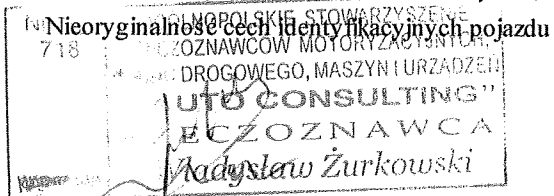 Nieoryginalność cech identyfikacyjnych pojazdu
OLNOPOLSKIE STOWARZYSZENIE
718
OZNAWCÓW MOTORYZACYJNYCH,
DROGOWEGO, MASZYN I URZĄDZEŃ
UTO CONSULTING"
ECZOZNAWCA
Władysław Żurkowski